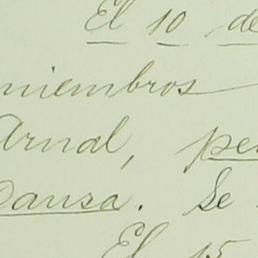 El 10 de
miembros
Arnal, pe
Dansa. Se
El 15